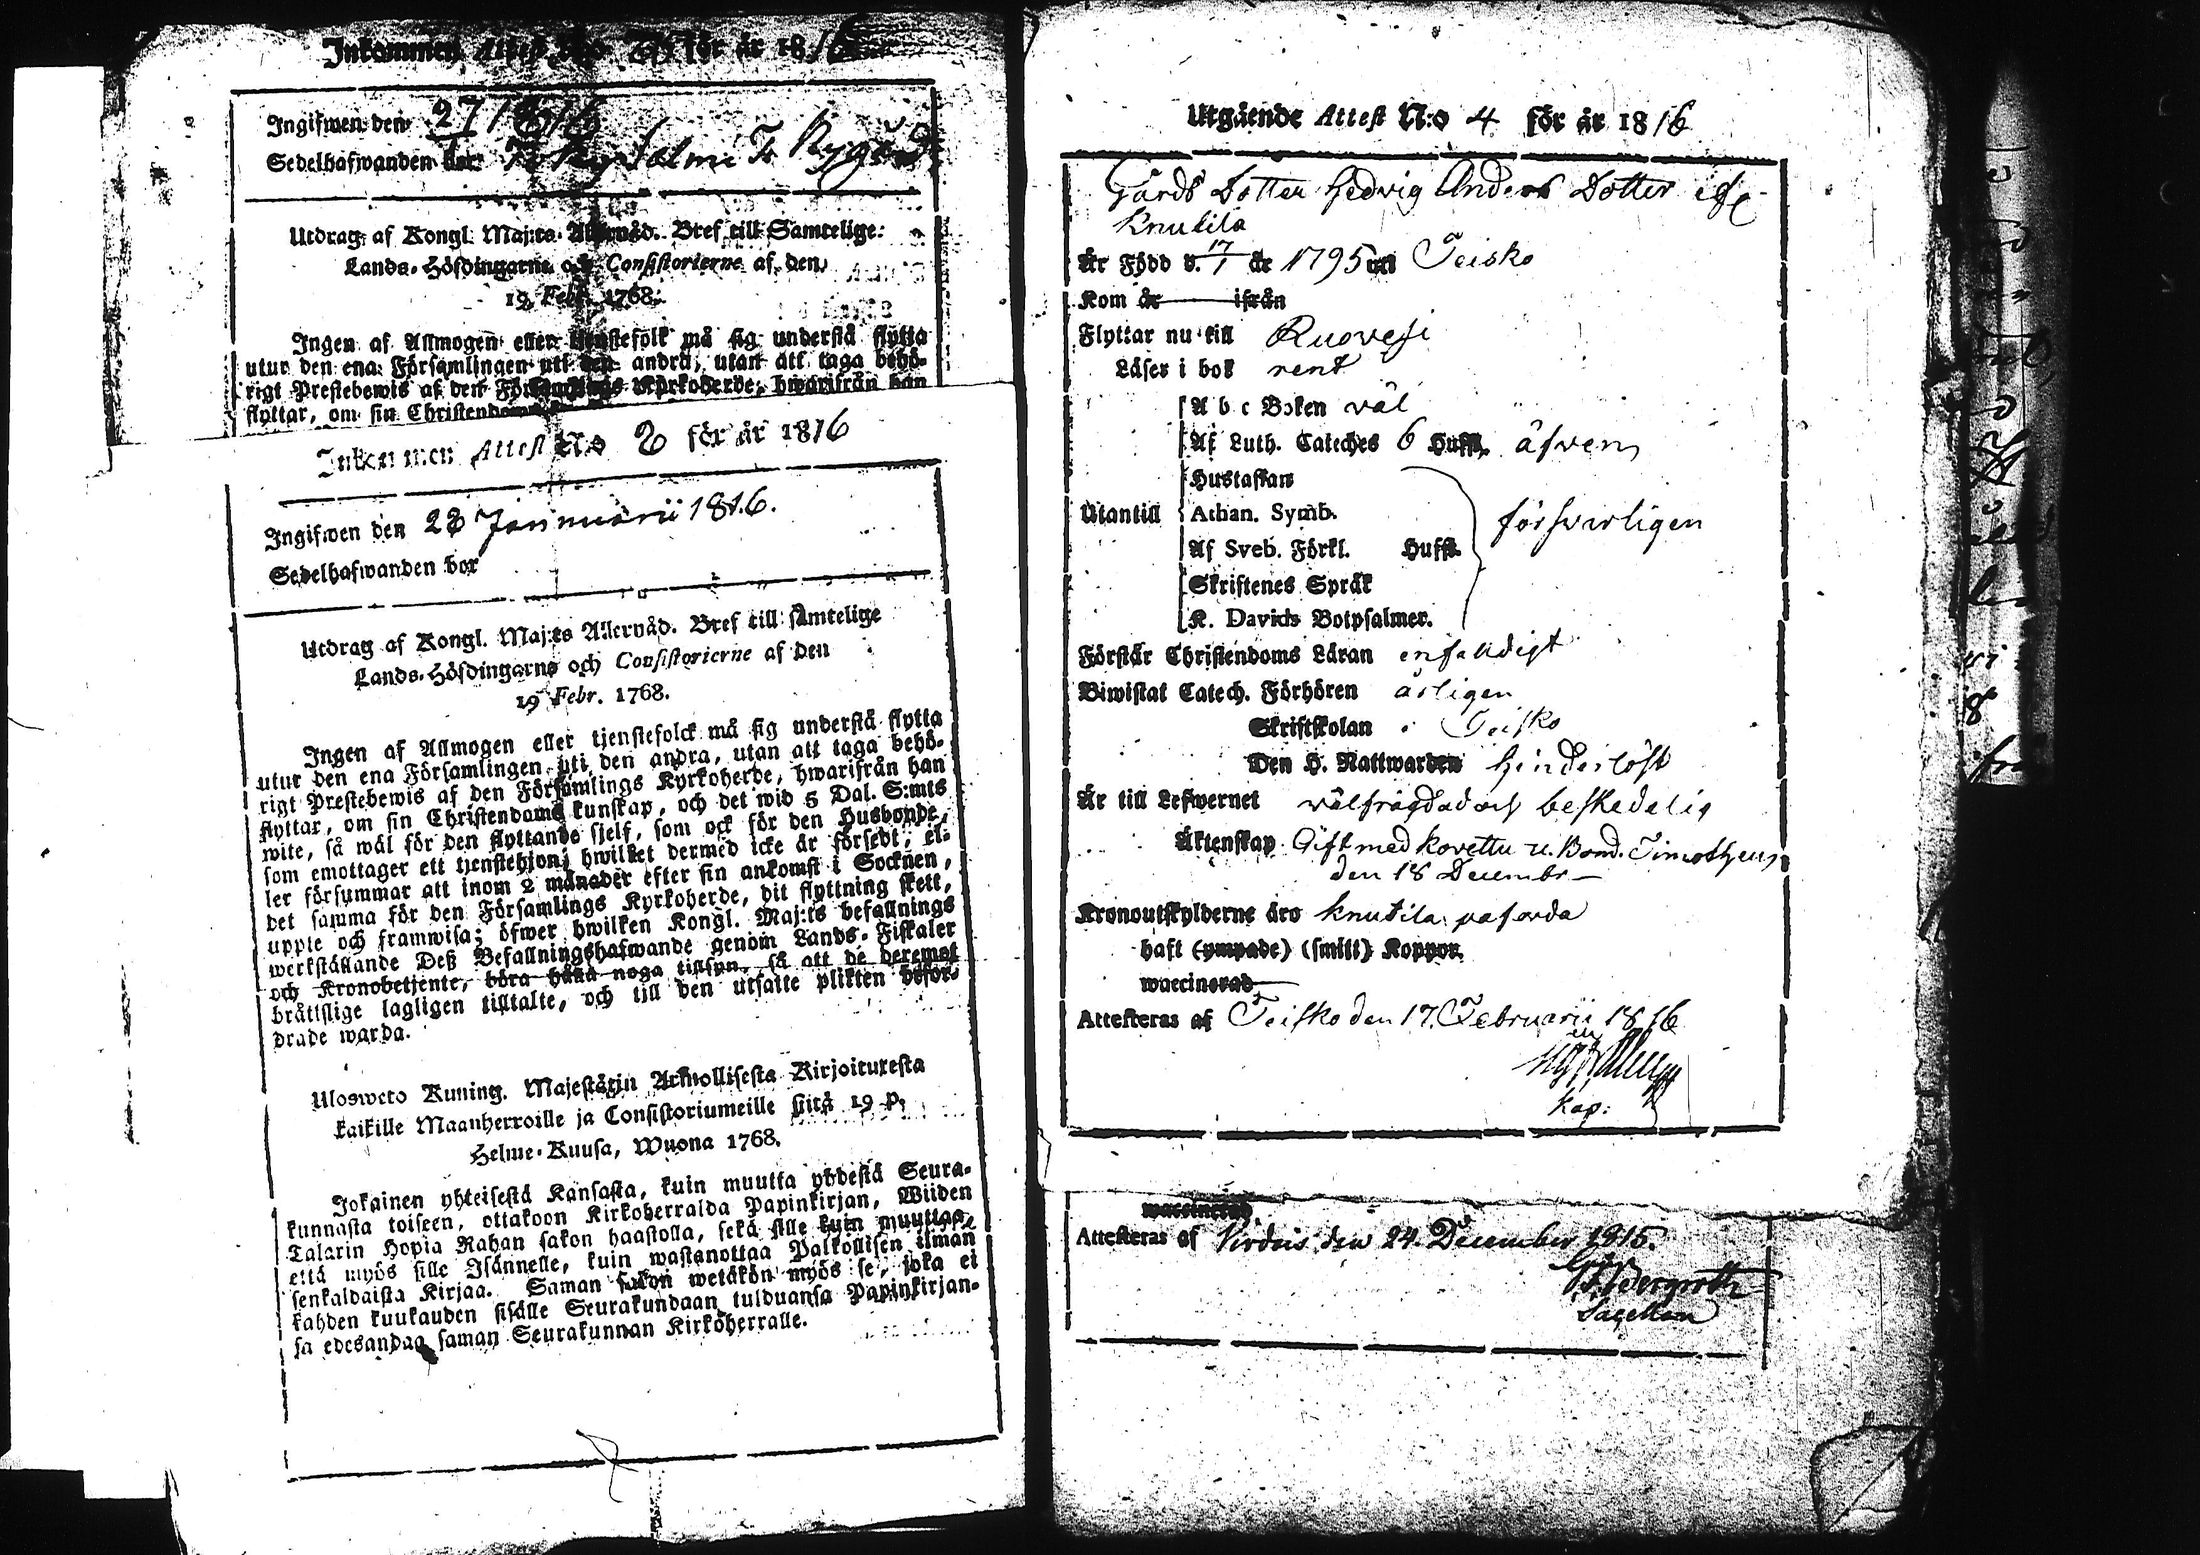 Inkommen Attest N:o för år 1816
Ingifwen den 27 1 1816
Sedelhafwanden bor
Utdrag af Kongl. Maj:ts Allernåd. Bref till Samtelige
Lands-Höfdingarne och Consistorierne af den
19 Febr. 1768.
Ingen af Allmogen eller tjenstefolk må sig understå flytta
utur den ena Församlingen uti den andra, utan att taga behö-
rigt Prestebewis af den Församlings Kyrkoherde, hwarifrån han
flyttar, om sin Christendoms
Inkommen Attest N:o 2 för år 1816
Ingifwen den 28 Jannuarii 1816.
Sedelhafwanden bor
Utdrag af Kongl. Maj:ts Allernåd. Bref till samtelige
Lands-Höfdingarne och Consistorierne af den
19 Febr. 1768.
Ingen af Allmogen eller tjenstefolck må sig understå flytta
utur den ena Församlingen uti den andra, utan att taga behö-
rigt Prestebewis af den Församlings Kyrkoherde, hwarifrån han
flyttar, om sin Christendoms kunskap, och det wid 5 Dal. S:mts
wite, så wäl för den flyttande sjelf, som ock för den Husbonde,
som emottager ett tjenstehjon, hwilket dermed icke är försedt; el-
ler försummar att inom 2 månader efter sin ankomst i Socknen,
det samma för den Församlings Kyrkoherde, dit flyttning skett,
upple och framwisa; öfwer hwilken Kongl. Maj:ts befallnings
werkställande Deß Befallningshafwande genom Lands-Fiskaler
och Kronobetjente, böra hålla noga tillsyn, så att de deremot
bråttslige lagligen tilltalte, och till den utsatte plikten befor-
drade warda.
Uloswето Kuning. Majestätin Armollisesta Kirjoituresta
kaikille Maanherroille ja Consistoriumeille siitä 19 p.
Helme-Kuusa, Wuona 1768.
Jokainen yhteisestä Kansasta, kuin muutta yhdestä Seura-
kunnasta toiseen, ottakoon Kirkoherralda Papinkirjan, Wiiden
Talarin Hopia Rahan sakon haastolla, sekä sille kuin muuttaa,
että myös sille Isännelle, kuin wastanottaa Palkollisen ilman
senkaldaista Kirjaa. Saman sakon wetäkön myös se, joka ei
kahden kuukauden sisälle Seurakundaan tulduansa Papinkirjan-
sa edesandaa saman Seurakunnan Kirkoherralle.
Utgående Attest N:o 4 för år 1816
Gårds Dotter Hedvig Anders Dotter ifr
Knutila
Är Född d. 17/1 år 1795 uti Teisko
Kom år ifrån
Flyttar nu till Ruovesi
Läser i bok rent
Utantill
A b c Boken väl
Af Luth. Cateches 6 Hufst. äfven
Hustaflan
Athan. Symb.
Af Sveb. Förkl. Hufst.
Skriftenes Språk
K. Davids Botpsalmer.
försvarligen
Förstår Christendoms Läran enfalldigt
Biwistat Catech. Förhören årligen
Skriftskolan i Teisko
Den H. Nattwarden hinderlöst
Är till Lefwernet välfrägdad och beskedelig
Äktenskap Gift med Kovettu u. Bond. Timotheus
den 18 Decembr
Kronoutskylderne äro Knutila påförda
haft (ympade) (smitt) Koppor.
waccinerad
Attesteras af Teisko den 17. Februarii 1816
Kap:
waccinerad
Attesteras af Virdois den 24. December 1815.
Sacellan